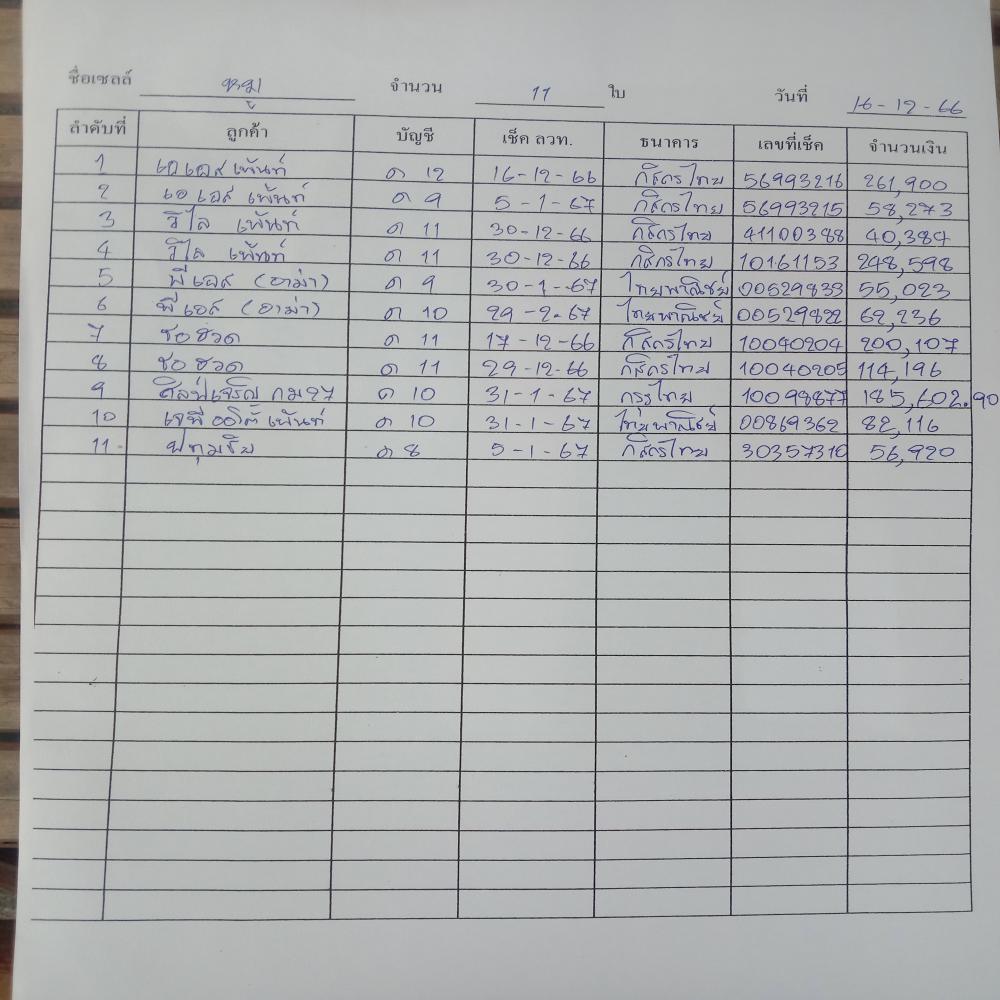 ชื่อเซลล์ หมู จำนวน 11 ใบ วันที่ 16-12-66
ลำดับที่ ลูกค้า บัญชี เช็ค ลวท. ธนาคาร เลขที่เช็ค จำนวนเงิน
1 เอเอส เพ้นท์ ด 12 16-12-66 กสิกรไทย 56993216 261,900
2 เอ เอส เพ้นท์ ด 9 5-1-67 กสิกรไทย 56993215 58,273
3 วิไล เพ้นท์ ด 11 30-12-66 กสิกรไทย 41100388 40,384
4 วิไล เพ้นท์ ด 11 30-12-66 กสิกรไทย 10161153 248,598
5 พีเอส (อาม่า) ด 9 30-1-67 ไทยพาณิชย์ 00529833 55,023
6 พีเอส (อาม่า) ด 10 29-2-67 ไทยพาณิชย์ 00529822 62,236
7 ด 11 17-12-66 กสิกรไทย 10040204 200,107
8 ด 11 29-12-66 กสิกรไทย 10040205 114,196
9 ศิลป์เจริญ กม27 ด 10 31-1-67 กรุงไทย 10098877 185,602.90
10 เจพี เพ้นท์ ด 10 31-1-67 ไทยพาณิชย์ 00869362 82,116
11 ด 8 5-1-67 กสิกรไทย 30357310 56,920